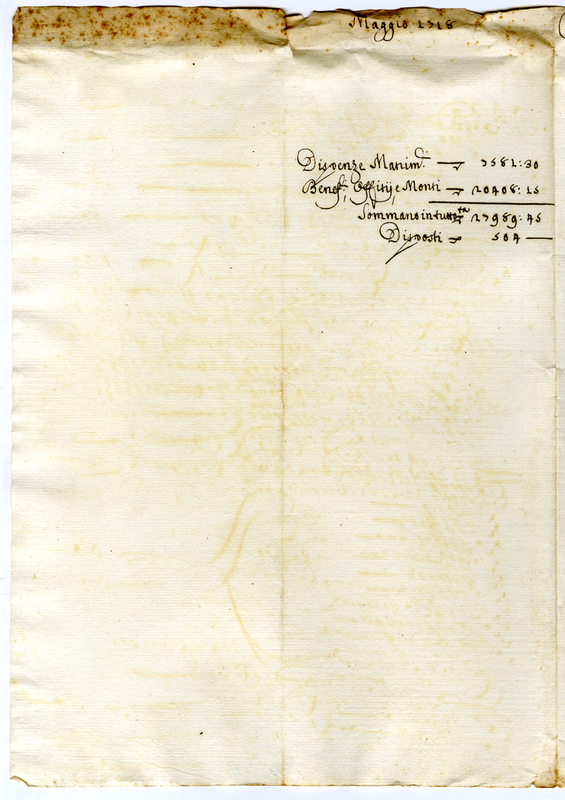 Maggio 1718
Dispenze Matrim.li — 7581:30
Benef.j, Offitij e Monti — 10408:15
Sommano in tutto 17989:45
Disposti 504 —